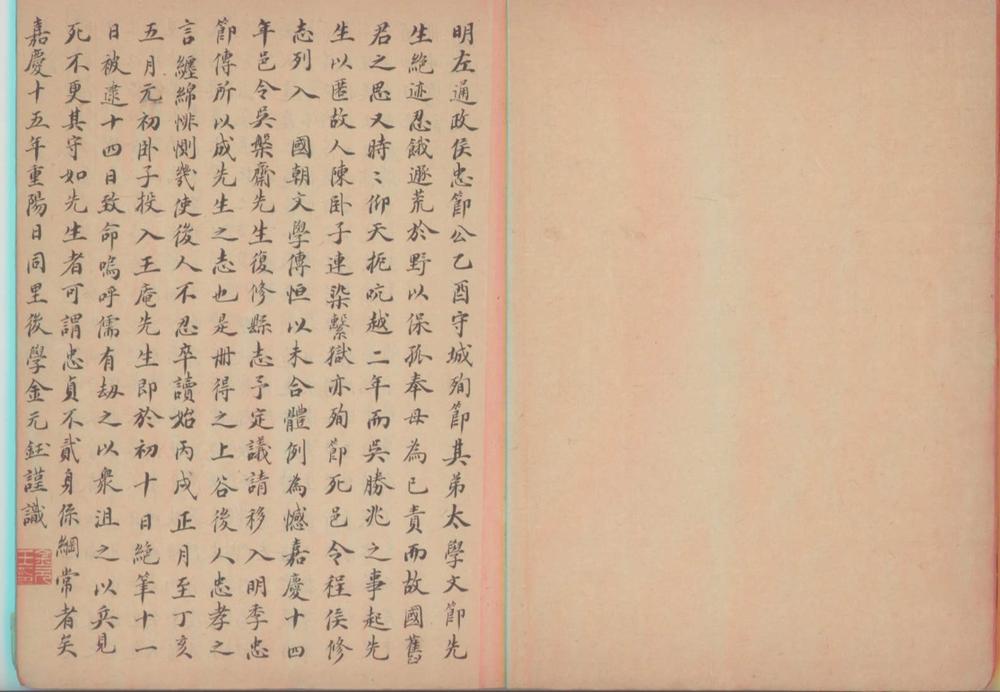 明左通政侯忠節公乙酉守城殉節其弟太學文節先
生絶迹忍餓遯荒於野以保孤奉母為己責而故國舊
君之思又時〻仰天扼吭越二年而吳勝兆之事起先
生以匿故人陳卧子連染繫獄亦殉節死邑令程侯修
志列入　國朝文學傳恒以未合體例為憾嘉慶十四
年邑令吳槃齋先生復修縣志予定議請移入明季忠
節傳所以成先生之志也是册得之上谷後人忠孝之
言纏綿悱惻幾使後人不忍卒讀始丙戌正月至丁亥
五月元初卧子投入王庵先生即於初十日絶筆十一
日被逮十四日致命嗚呼儒有劫之以衆沮之以兵見
死不更其守如先生者可謂忠貞不貳身係綱常者矣
嘉慶十五年重陽日同里後學金元鈺謹識